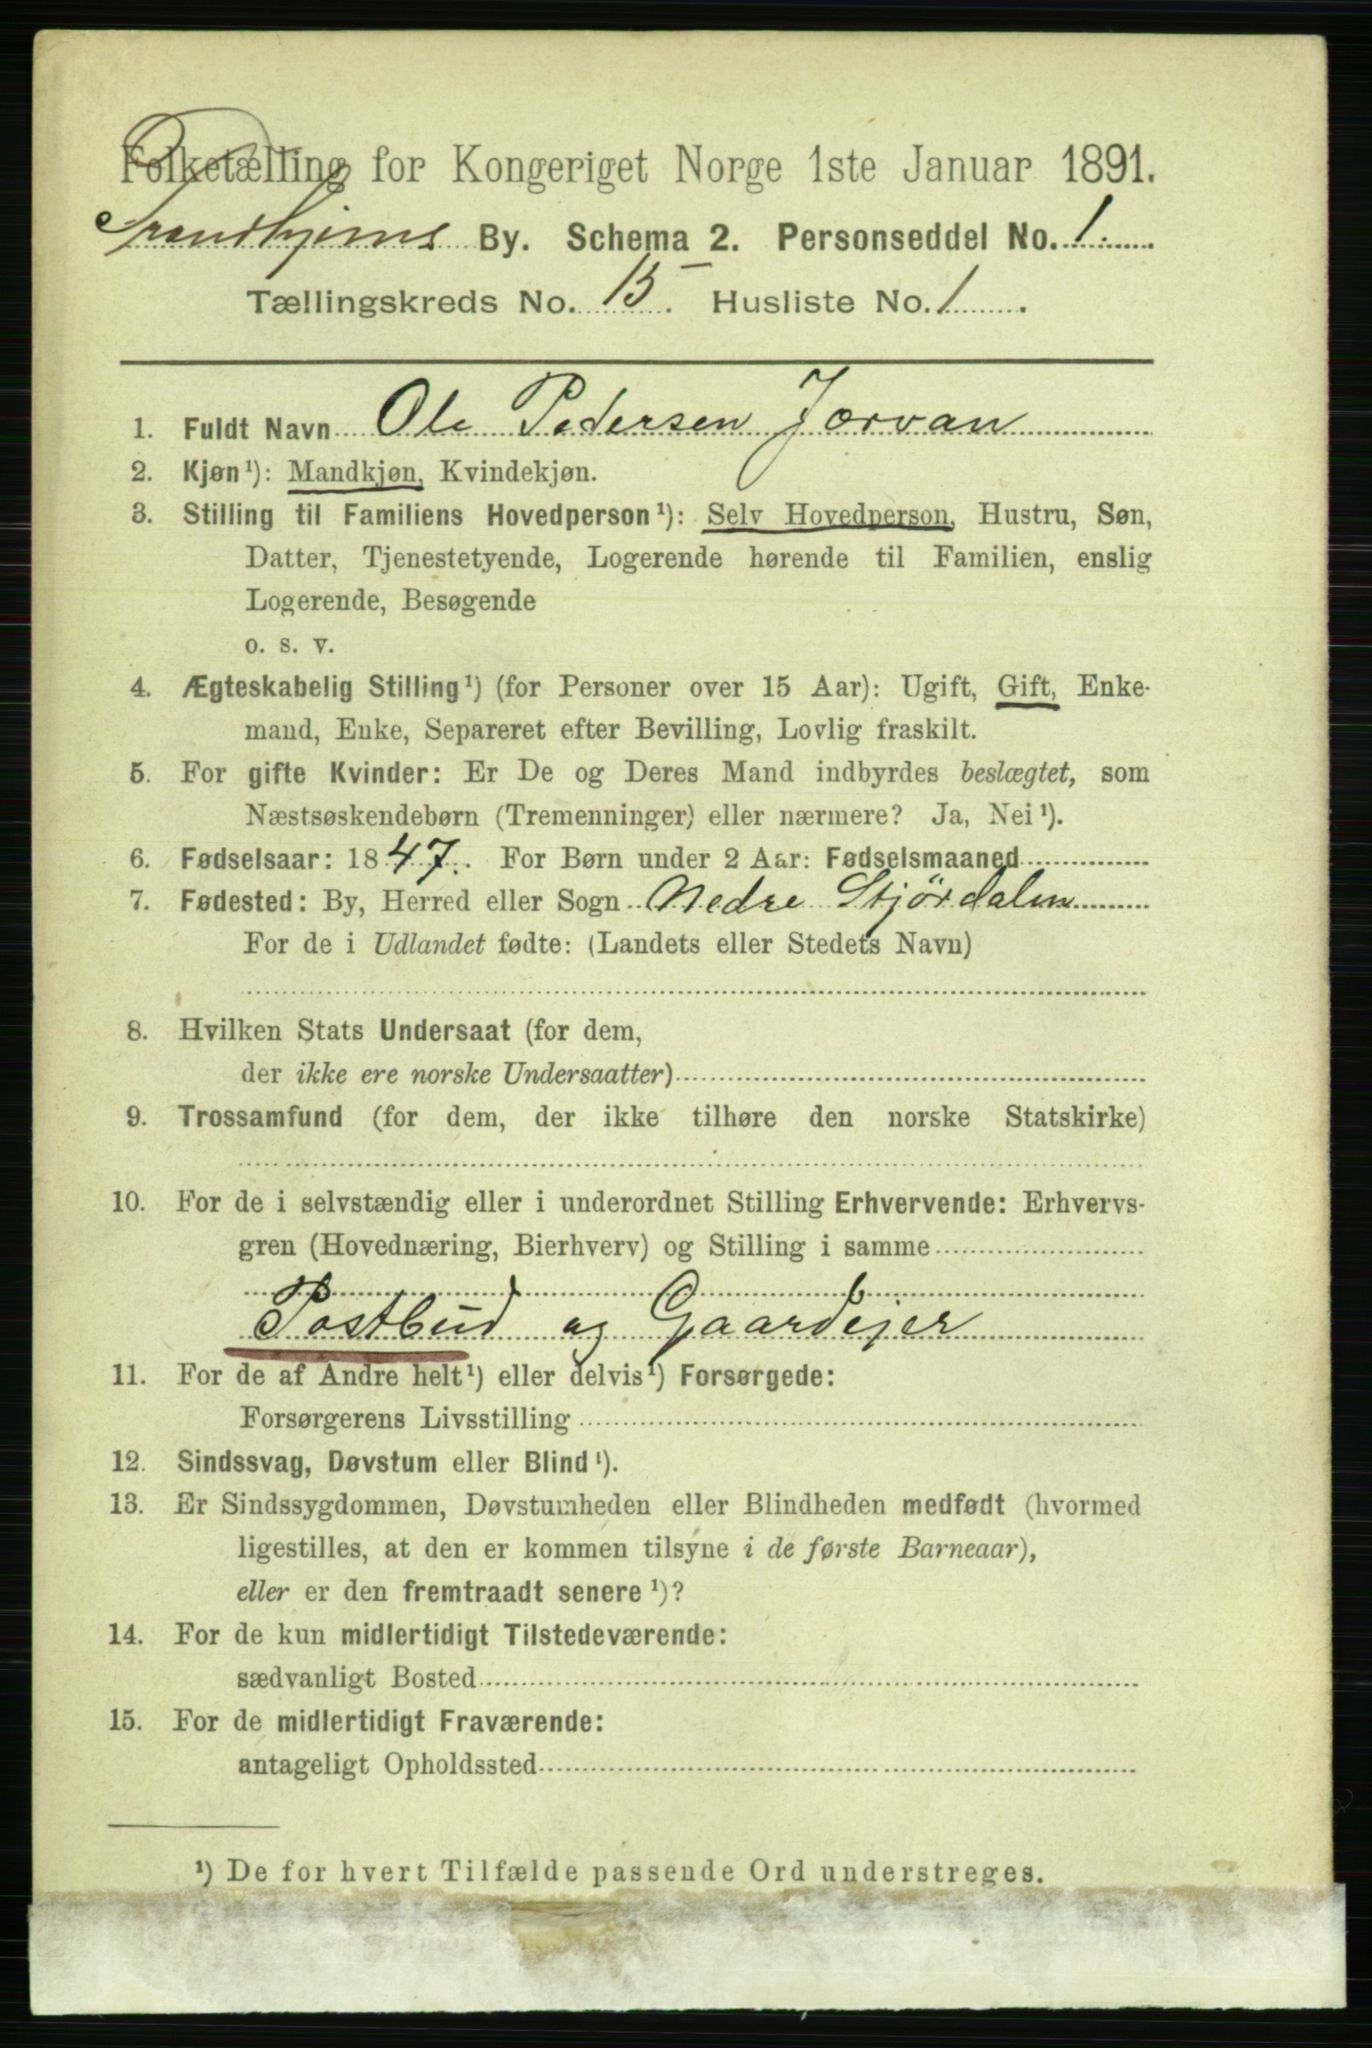 Folketælling for Kongeriget Norge 1ste Januar 1891.
Trondhjems By. Schema 2. Personseddel No. 1.
Tællingskreds No. 15. Husliste No. 1
1. Fuldt Navn Ole Pedersen Jorvan
2. Kjøn¹): Mandkjøn, Kvindekjøn.
3. Stilling til Familiens Hovedperson¹): Selv Hovedperson, Hustru, Søn,
Datter, Tjenestetyende, Logerende hørende til Familien, enslig
Logerende, Besøgende
o. s. v.
4. Ægteskabelig Stilling¹) (for Personer over 15 Aar): Ugift, Gift, Enke-
mand, Enke, Separeret efter Bevilling, Lovlig fraskilt.
5. For gifte Kvinder: Er De og Deres Mand indbyrdes beslægtet, som
Næstsøskendebørn (Tremenninger) eller nærmere? Ja, Nei¹).
6. Fødselsaar: 1847. For Børn under 2 Aar: Fødselsmaaned
7. Fødested: By, Herred eller Sogn Nedre Stjördalen
For de i Udlandet fødte: (Landets eller Stedets Navn)
8. Hvilken Stats Undersaat (for dem,
der ikke ere norske Undersaatter)
9. Trossamfund (for dem, der ikke tilhøre den norske Statskirke)
10. For de i selvstændig eller i underordnet Stilling Erhvervende: Erhvervs-
gren (Hovednæring, Bierhverv) og Stilling i samme
Postbud og Gaardejer
11. For de af Andre helt¹) eller delvis¹) Forsørgede:
Forsørgerens Livsstilling
12. Sindssvag, Døvstum eller Blind¹).
13. Er Sindssygdommen, Døvstumheden eller Blindheden medfødt (hvormed
ligestilles, at den er kommen tilsyne i de første Barneaar),
eller er den fremtraadt senere¹)?
14. For de kun midlertidigt Tilstedeværende:
sædvanligt Bosted
15. For de midlertidigt Fraværende:
antageligt Opholdssted
¹) De for hvert Tilfælde passende Ord understreges.